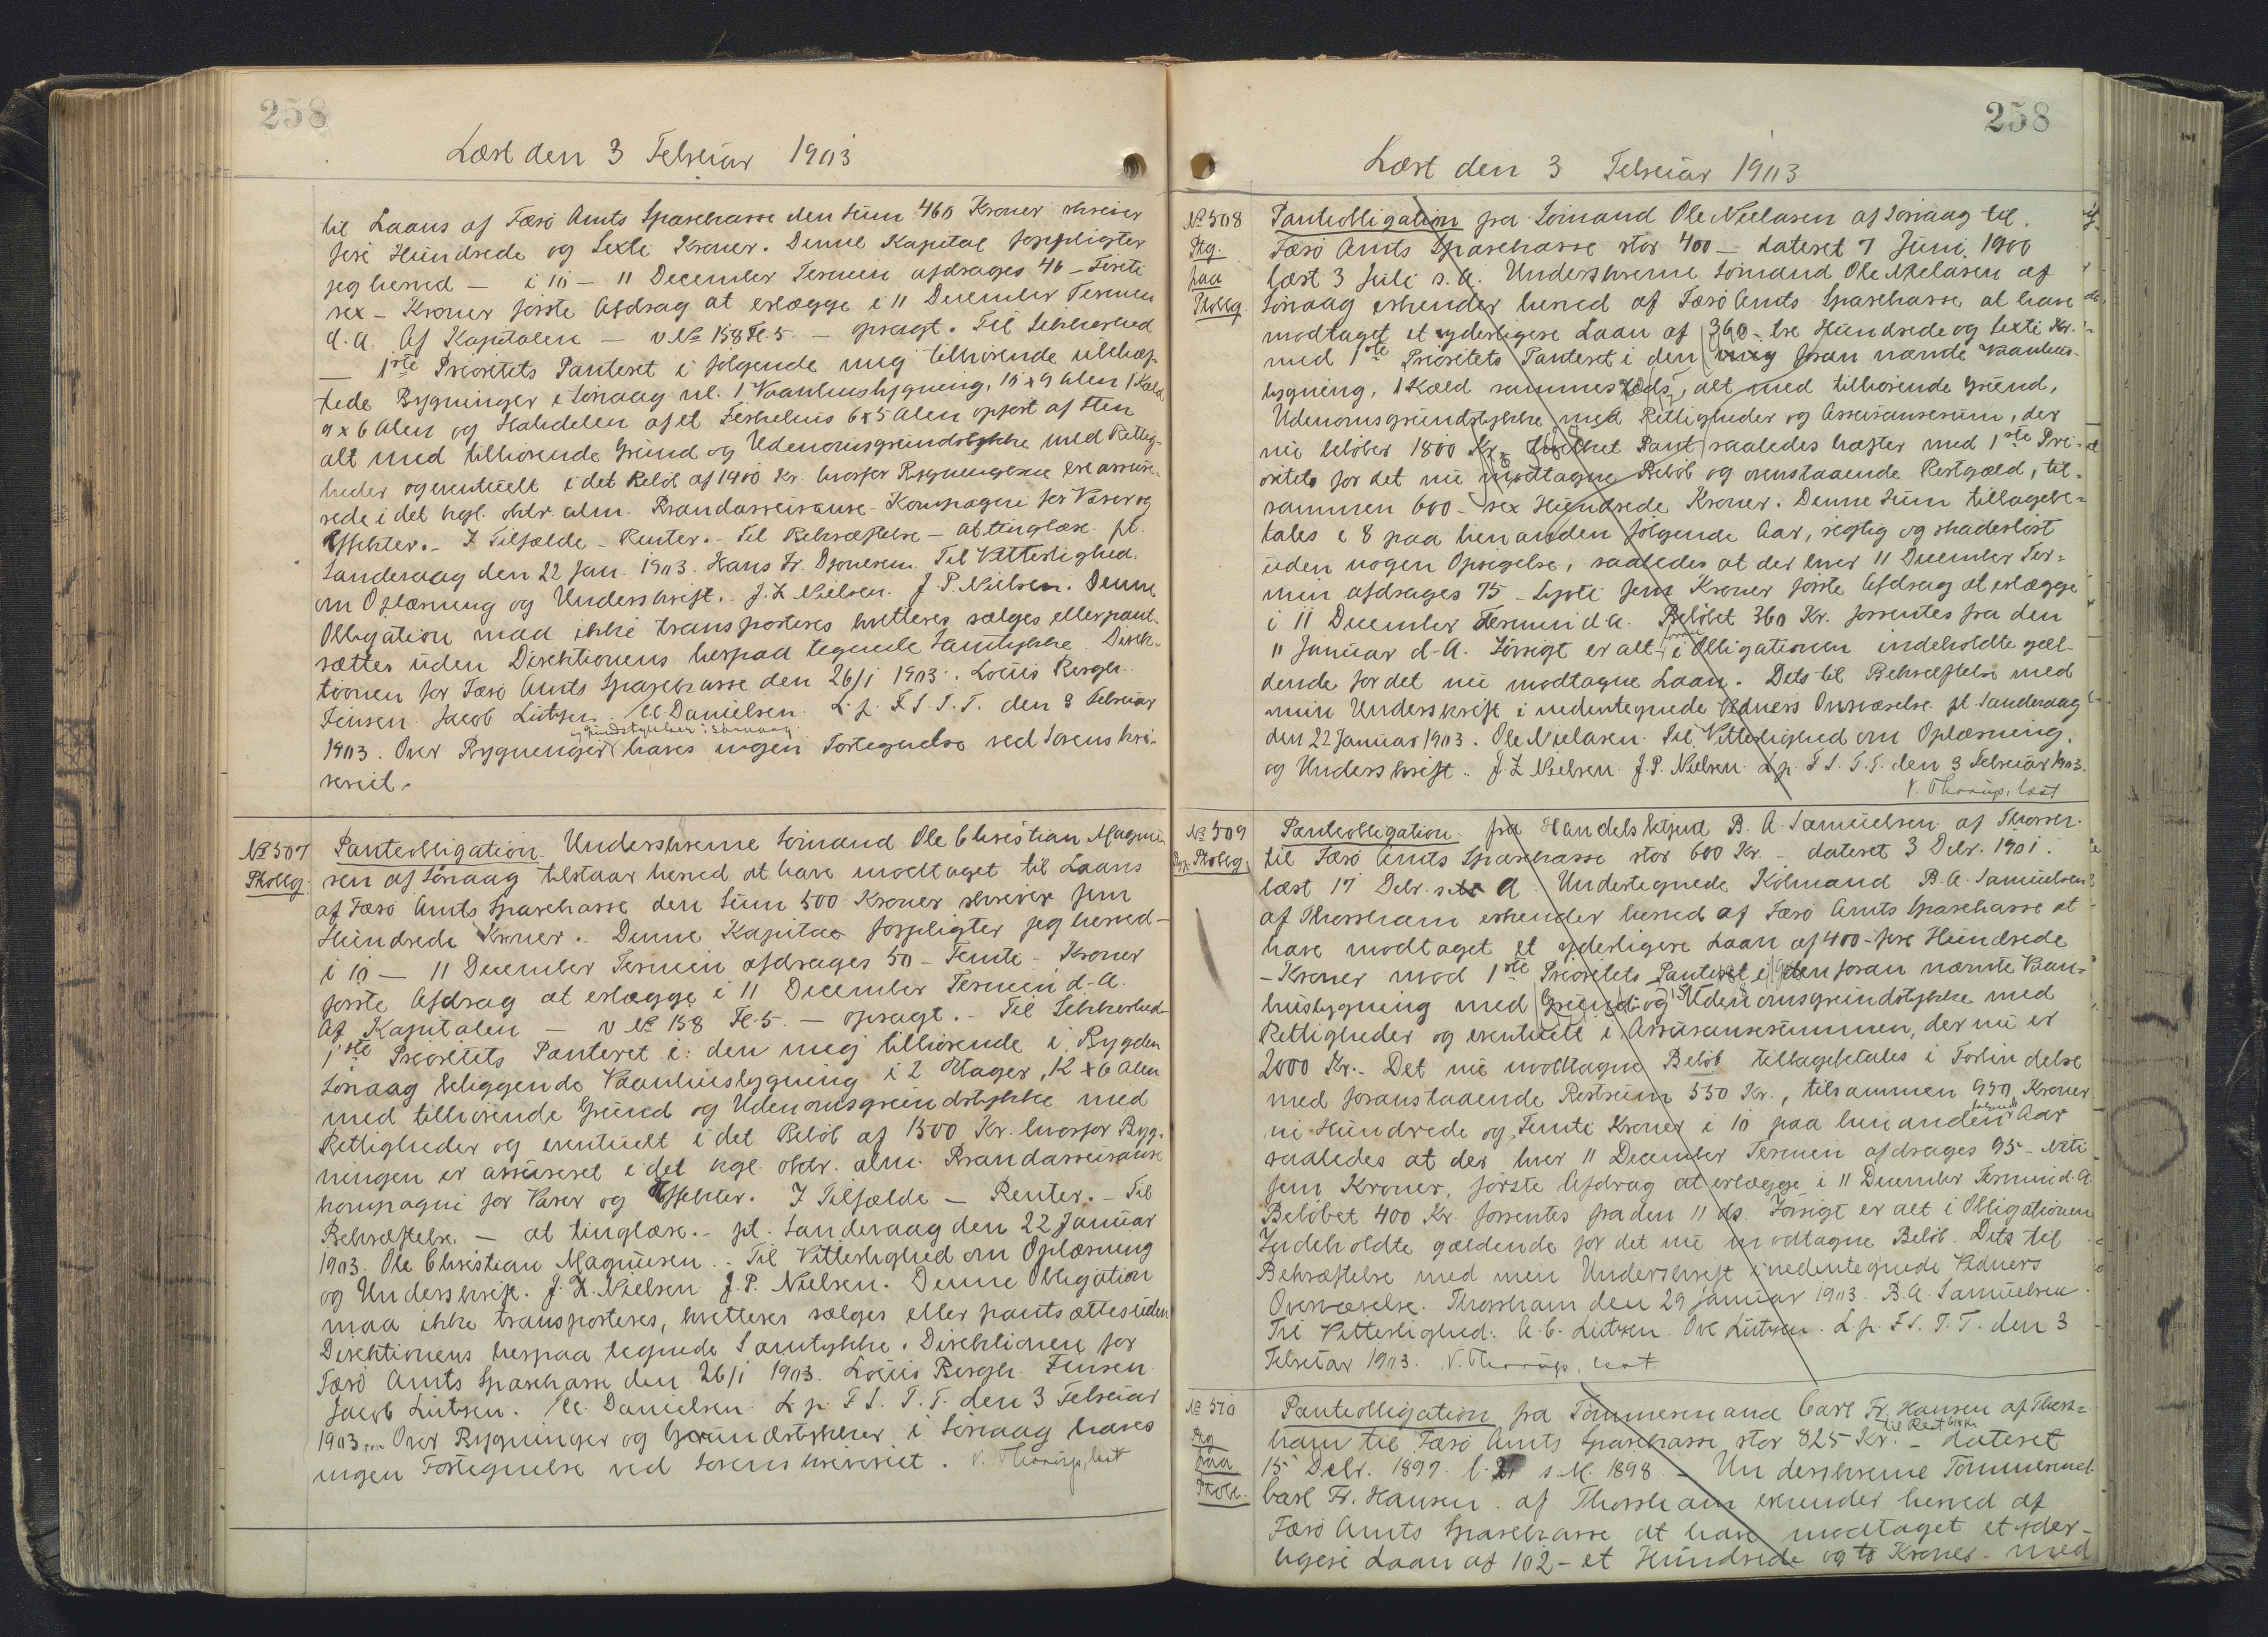 258
Læst den 3 Februar 1903
til Laans af Færø Amts Sparekasse den Sum 460 Kroner skriver
fire Hundrede og Sexti Kroner. Denne Kapital forpligter
jeg herved — i 10 — 11 December Termin afdrages 46 – Firti
sex – Kroner første Afdrag at erlægge i 11 December Termin
d.A. Af Kapitalen — v No 158 Fl. 5 — opsagt. Til Sikkerhed
— 1ste Prioritets Panteret i følgende mig tilhørende ubehæf-
tede Bygninger i Sørvaag nl. 1 Vaanhusbygning, 10 x 9 Alen 1 Kæld
9 x 6 Alen og Halvdelen af et Fiskehus 6 x 5 Alen opført af Sten
alt med tilhørende Grund og Udenomsgrundstykke med Rettig-
heder og eventuelt i det Beløb af 1900 Kr. hvorfor Bygningerne ere assure-
rede i det kgl. oktr. alm. Brandassurance-Kompagni for Varer og
Effekter. – I Tilfælde – Renter. – Til Bekræftelse – at tinglæse. pt.
Sandevaag den 22 Jan. 1903. Hans Fr. Djonesen. Til Vitterlighed
om Oplæsning og Underskrift. J. Z. Nielsen. J. P. Nielsen. Denne
Obligation maa ikke transporteres kvitteres sælges eller pant-
sættes uden Direktionens herpaa tegnede Samtykke. Direk-
tionen for Færø Amts Sparekasse den 26/1 1903. Louis Bergh.
Jensen. Jacob Lützen. M. Danielsen. L. p. F. S. T. T. den 3 Februar
og Grundstykker i Sørvaag
1903. Over Bygninger haves ingen Fortegnelse ved Sorenskri-
veriet.
No 507
Pkollg.
Panteobligation. Underskrevne Sømand Ole Christian Magnu-
sen af Sørvaag tilstaar herved at have modtaget til Laans
af Færø Amts Sparekasse den Sum 500 Kroner skriver fem
Hundrede Kroner. Denne Kapital forpligter jeg herved –
i 10 — 11 December Termin afdrages 50 – Femti – Kroner
første Afdrag at erlægge i 11 December Termin d.A.
Af Kapitalen — v No 158 Fl. 5. — opsagt. – Til Sikkerhed
1ste Prioritets Panteret i: den mig tilhørende i Bygden
Sørvaag beliggende Vaanhusbygning i 2 Etager, 12 x 6 Alen
med tilhørende Grund og Udenomsgrundstykke med
Rettigheder og eventuelt i det Beløb af 1500 Kr. hvorfor Byg-
ningen er assureret i det kgl. oktr. alm. Brandassurance
kompagni for Varer og Effekter. I Tilfælde — Renter. – Til
Bekræftelse. — at tinglæse. – pt. Sandevaag den 22 Januar
1903. Ole Christian Magnusen. – Til Vitterlighed om Oplæsning
og Underskrift. J. Z. Nielsen. J. P. Nielsen. Denne Obligation
maa ikke transporteres, kvitteres sælges eller pantsættes uden
Direktionens herpaa tegnede Samtykke. Direktionen for
Færø Amts Sparekasse den 26/1 1903. Louis Bergh. Jensen
Jacob Lützen. M. Danielsen. L. p. F. S. T. T. den 3 Februar
1903. Over Bygninger og Grundstykker i Sørvaag haves
ingen Fortegnelse ved Sorenskriveriet. V. Thorup, cst
258
Læst den 3 Februar 1903
No 508
Pkg.
paa
Pkollg.
Panteobligation fra Sømand Ole Nielasen af Sørvaag til
Færø Amts Sparekasse stor 400 – dateret 7 Juni 1900
læst 3 Juli s. A. Underskrevne Sømand Ole Nielasen af
Sørvaag erkender herved af Færø Amts Sparekasse at have
modtaget et yderligere Laan af 360 – tre Hundrede og Sexti Kr.
med 1ste Prioritets Panteret i den foran nævnte Vaanhus-
bygning, 1 Kæld sammesteds, alt med tilhørende Grund,
Udenomsgrundstykke med Rettigheder og Assurancesum, der
nu beløber 1800 Kr. hvilket Pant saaledes hæfter med 1ste Pri-
oritets for det nu modtagne Beløb og ovenstaaende Restgæld, til-
sammen 600 – sex Hundrede Kroner. Denne Sum tilbagebe-
tales i 8 paa hinanden følgende Aar, rigtig og skadesløst
uden nogen Opsigelse, saaledes at der hver 11 December Ter-
min afdrages 75 – Sytti fem Kroner første Afdrag at erlægge
i 11 December Termin d.A. Beløbet 360 Kr. forrentes fra den
11 Januar d.A. Iøvrigt er alt i Obligationen indeholdte gæl-
dende for det nu modtagne Laan. Dets til Bekræftelse med
min Underskrift i nedentegnede Vidners Overværelse. pt. Sandevaag
den 22 Januar 1903. Ole Nielasen. Til Vitterlighed om Oplæsning,
og Underskrift. J. Z. Nielsen. J. P. Nielsen. L. p. F. S. T. T. den 3 Februar 1903.
V. Thorup, cst
No 509
Pkollg.
Panteobligation fra Handelsbetjent B. A. Samuelsen af Thorsh.
til Færø Amts Sparekasse stor 600 Kr. – dateret 3 Debr. 1901.
læst 17 Debr. s. A. Undertegnede Købmand B. A. Samuelsen
af Thorshavn erkender herved af Færø Amts Sparekasse at
have modtaget et yderligere Laan af 400 – fire Hundrede
– Kroner mod 1ste Prioritets Panteret i den foran nævnte Vaan-
husbygning med Grund og Udenomsgrundstykke med
Rettigheder og eventuelt i Assurancesummen, der nu er
2000 Kr. – Det nu modtagne Beløb tilbagebetales i Forbindelse
med foranstaaende Restsum 550 Kr., tilsammen 950 Kroner
ni Hundrede og Femti Kroner i 10 paa hinanden følgende Aar
saaledes at der hver 11 December Termin afdrages 95 – Niti
fem Kroner, første Afdrag at erlægge i 11 December Termin d.A.
Beløbet 400 Kr. forrentes fra den 11 ds. Iøvrigt er alt i Obligationen
Indeholdte gældende for det nu modtagne Beløb. Dets til
Bekræftelse med min Underskrift i nedentegnede Vidners
Overværelse. Thorshavn den 29 Januar 1903. B. A. Samuelsen.
Til Vitterlighed: A. C. Lützen. Ove Lützen. L. p. F. S. T. T. den 3
Februar 1903. V. Thorup, cst.
No 510
Pkg
paa
Pkoll.
Panteobligation fra Tømmermand Carl Fr. Hansen af Thors-
havn til Færø Amts Sparekasse stor 825 Kr. – dateret
15 Debr. 1897. s. M. 1898 – Underskrevne Tømmermand
Carl Fr. Hansen af Thorshavn erkender herved af
Færø Amts Sparekasse at have modtaget et yder-
ligere Laan af 102 – et Hundrede og to Kroner – med